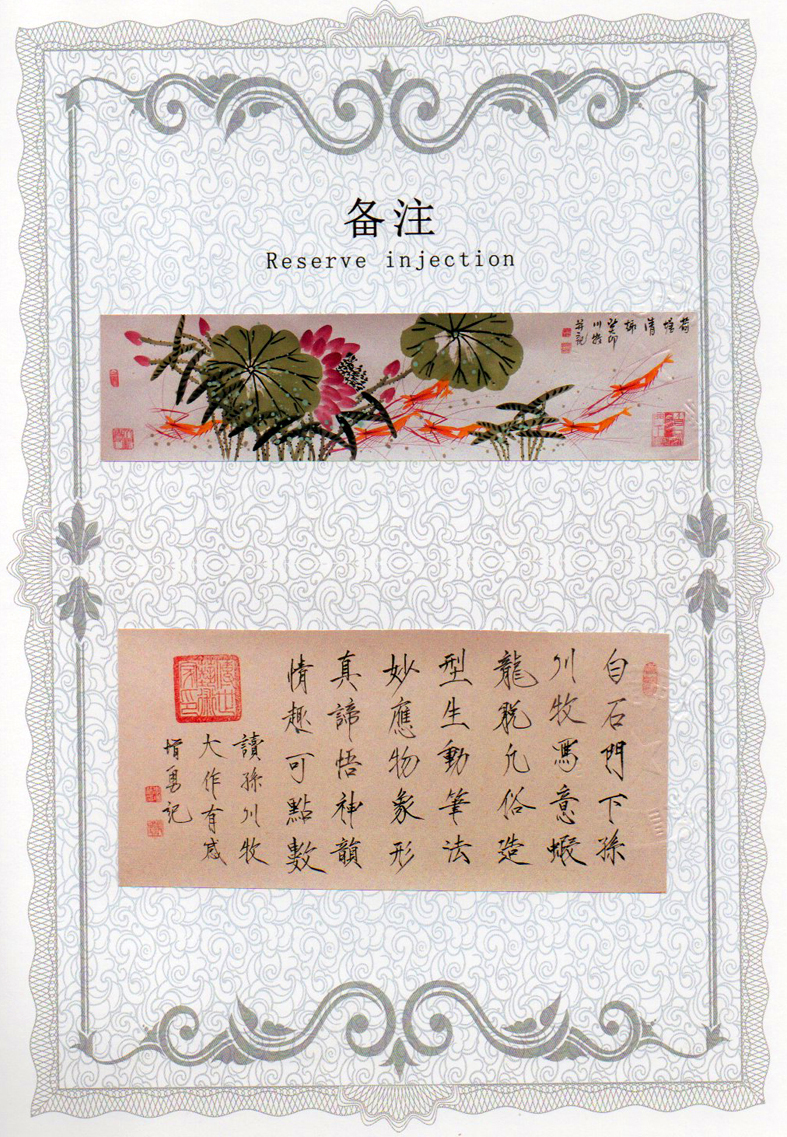 备注
Reserve injection
荷塘清趣
川牧
并記
白石門下孫
川牧寫意蝦
龍脱凡俗造
型生動筆法
妙應物象形
真諦悟神韻
情趣可點數
讀孫川牧
大作有感
增勇記